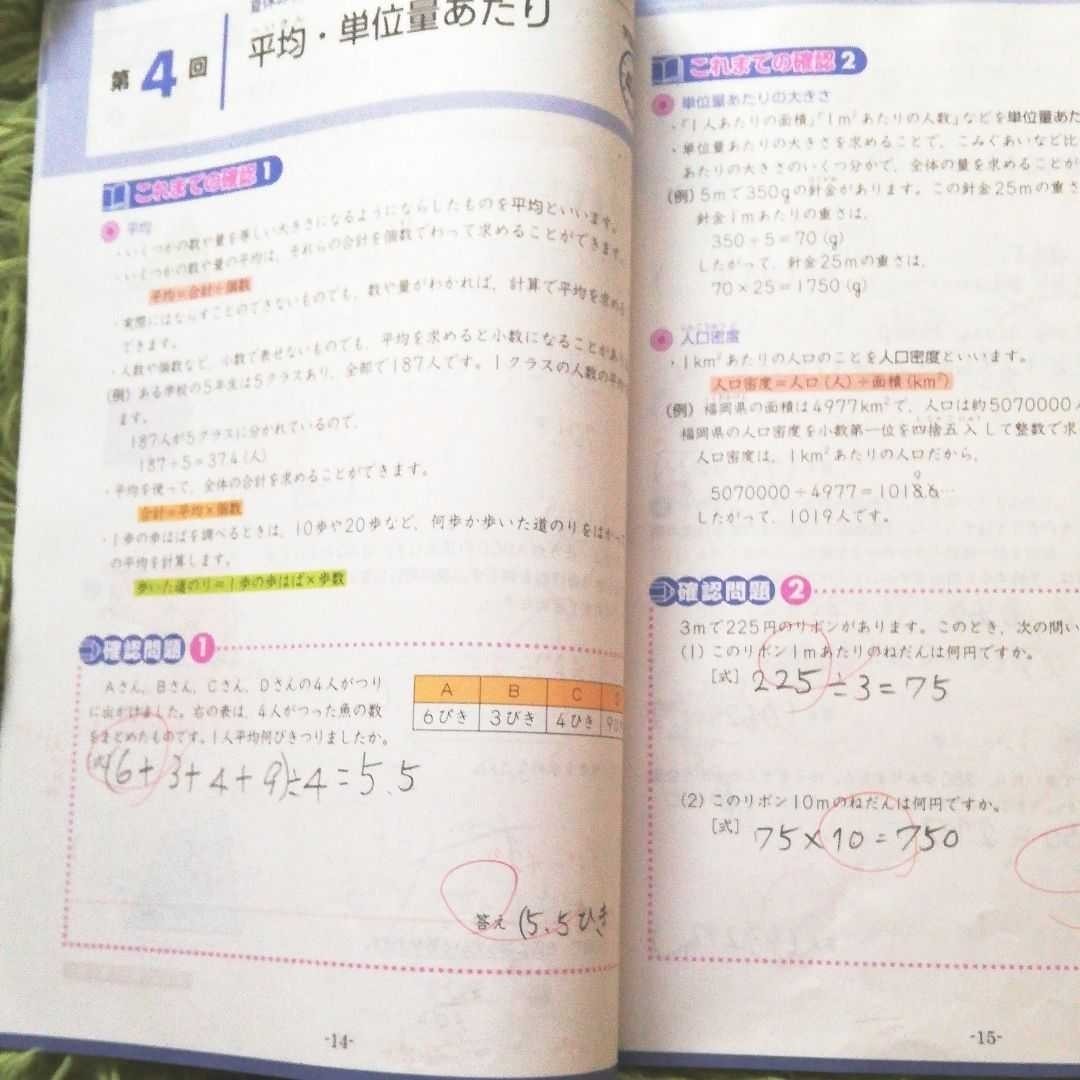 第4回
平均・単位量あたり
これまでの確認1
平均
・いくつかの数や量を等しい大きさになるようにならしたものを平均といいます。
・いくつかの数や量の平均は、それらの合計を個数でわって求めることができます。
平均=合計÷個数
・実際にはならすことのできないものでも、数や量がわかれば、計算で平均を求める
できます。
・人数や個数など、小数で表せないものでも、平均を求めると小数になることがあり
(例) ある学校の5年生は5クラスあり、全部で187人です。1クラスの人数の平均
ます。
187人が5クラスに分かれているので、
187÷5=37.4(人)
・平均を使って、全体の合計を求めることができます。
合計=平均×個数
・1歩の歩はばを調べるときは、10歩や20歩など、何歩か歩いた道のりをはかっ
の平均を計算します。
歩いた道のり=1歩の歩はば×歩数
確認問題1
Aさん、Bさん、Cさん、Dさんの4人がつり
に出かけました。右の表は、4人がつった魚の数
をまとめたものです。1人平均何びきつりましたか。
A B C D
6ぴき 3びき 4ひき 9
(式)(6+3+4+9)÷4=5.5
答え (5.5ひき
-14-
これまでの確認2
単位量あたりの大きさ
・「1人あたりの面積」「1m²あたりの人数」などを単位量あた
・単位量あたりの大きさを求めることで、こみぐあいなど比
あたりの大きさのいくつ分かで、全体の量を求めることが
(例) 5mで350gの針金があります。この針金25mの重さ
針金1mあたりの重さは、
350÷5=70(g)
したがって、針金25mの重さは、
70×25=1750(g)
人口密度
・1km²あたりの人口のことを人口密度といいます。
人口密度=人口(人)÷面積(km²)
(例) 福岡県の面積は4977km²で、人口は約5070000人
福岡県の人口密度を小数第一位を四捨五入して整数で求
人口密度は、1km²あたりの人口だから、
9
5070000÷4977=1018.6…
したがって、1019人です。
確認問題2
3mで225円のリボンがあります。このとき、次の問い
(1) このリボン1mあたりのねだんは何円ですか。
[式] 225÷3=75
(2) このリボン10mのねだんは何円ですか。
[式] 75×10=750
-15-